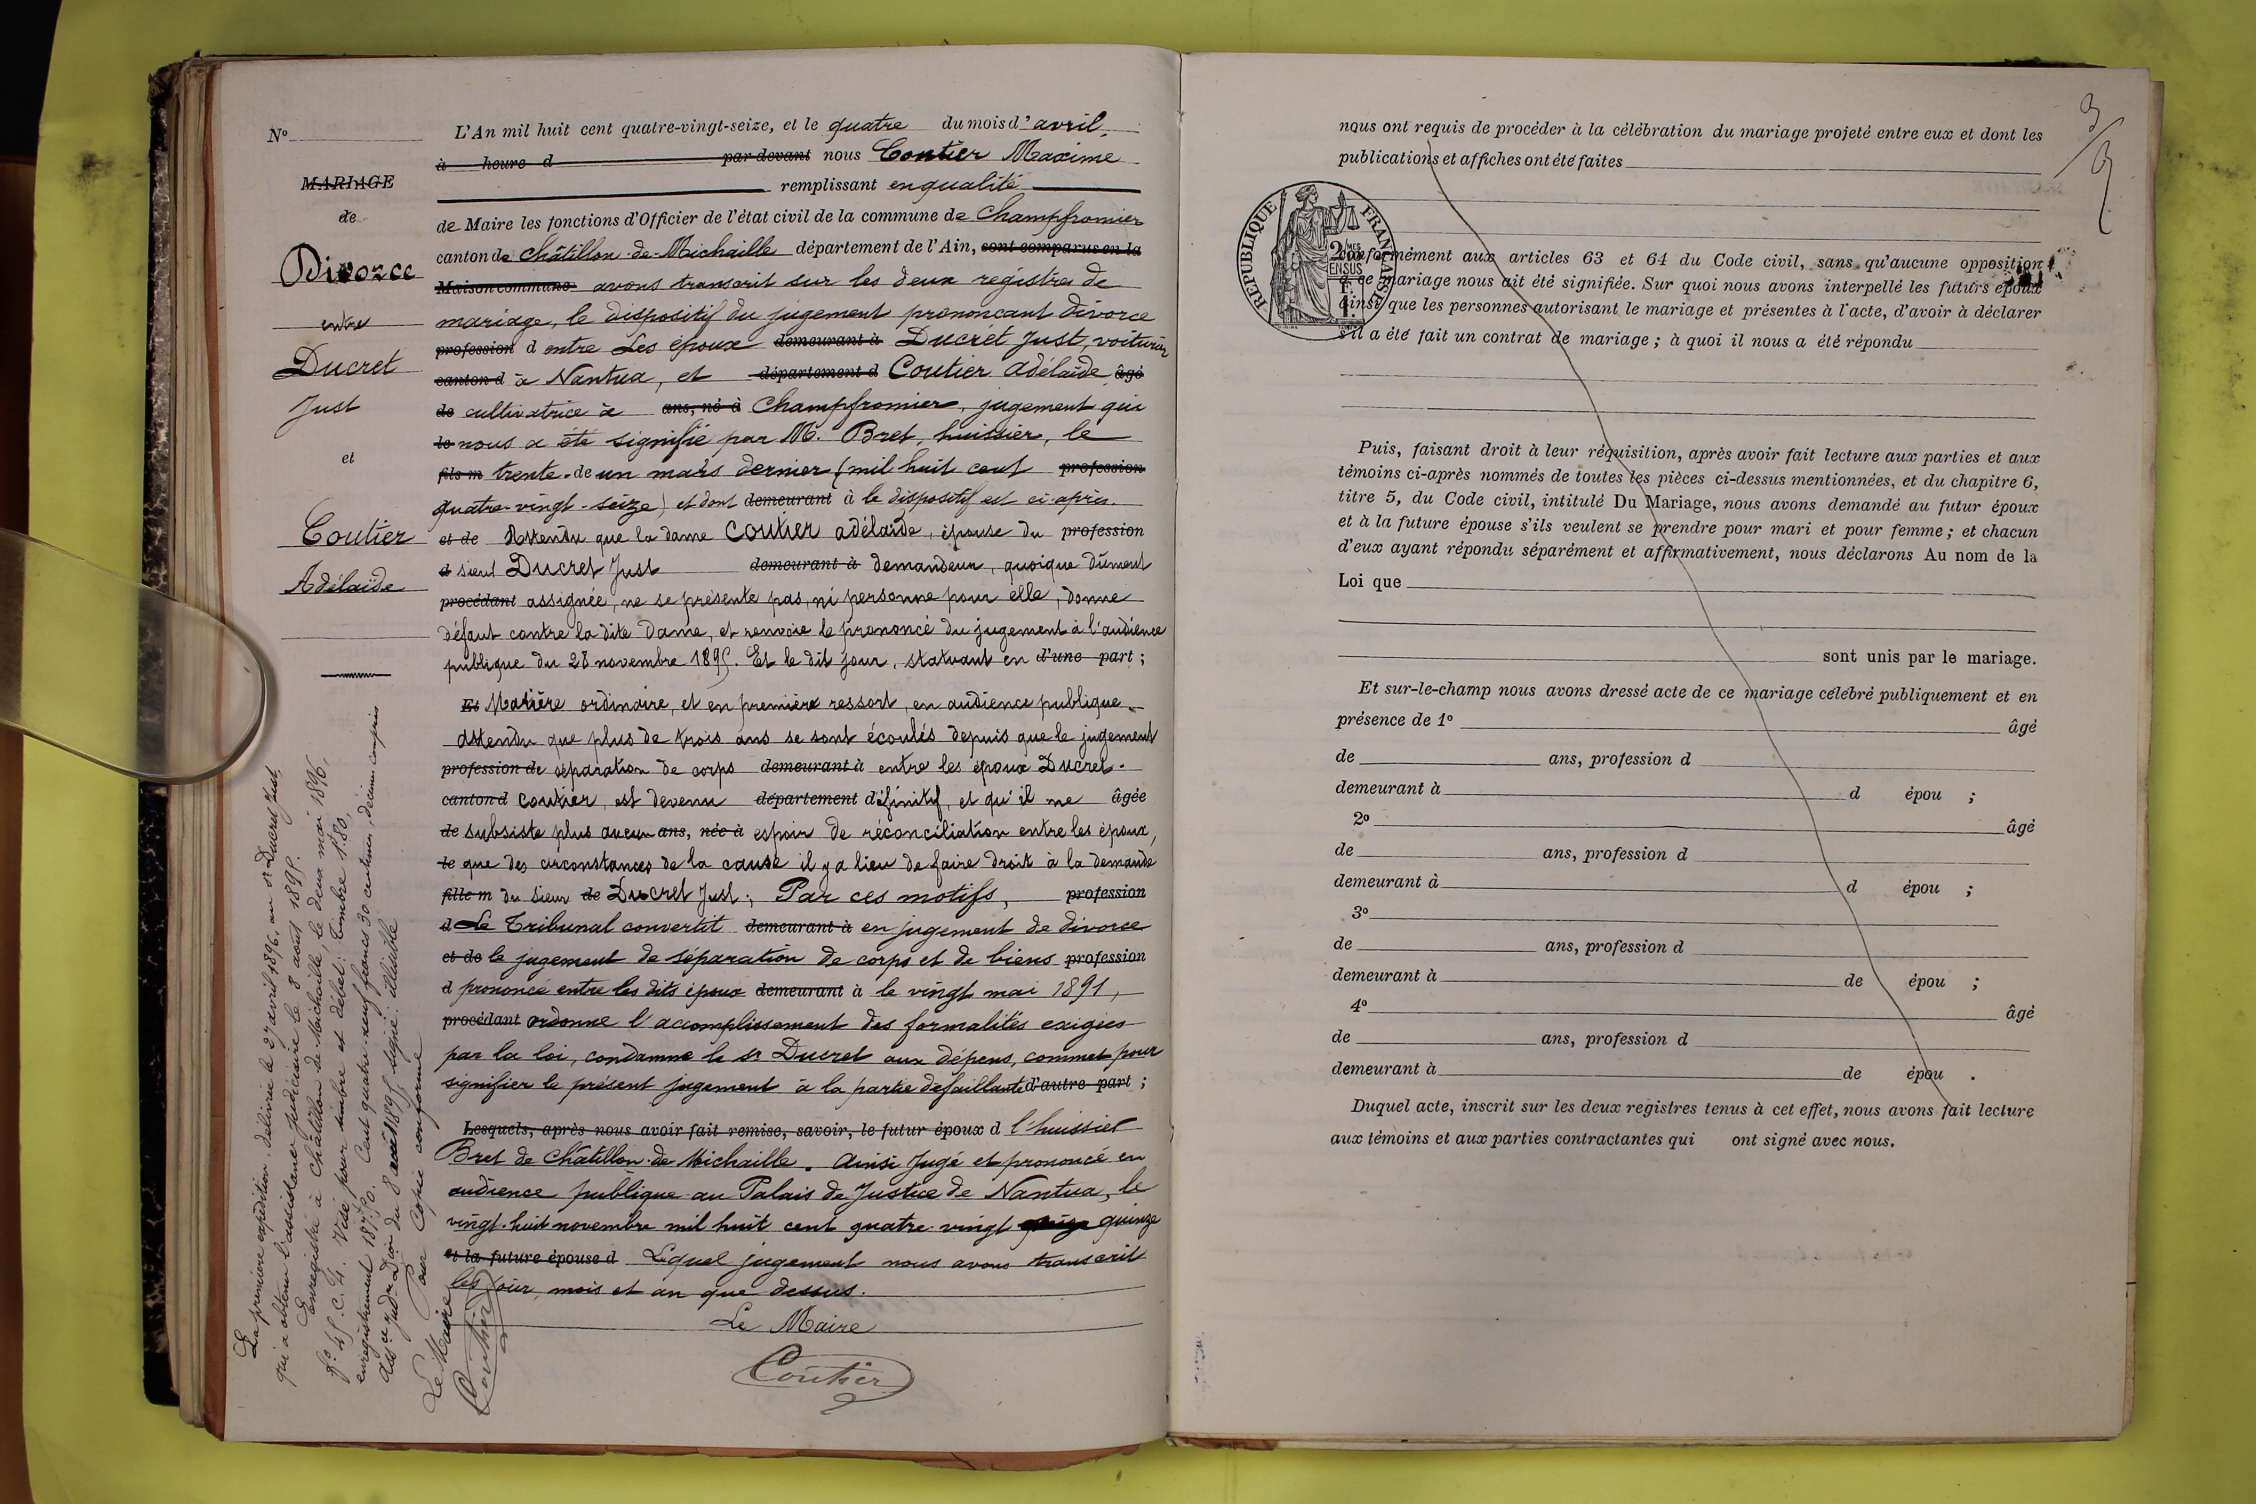 No
MARIAGE
de
Divorce
entre
Ducret
Just
et
Coutier
Adélaïde
L'An mil huit cent quatre-vingt-seize, et le quatre du mois d'avril,
à heure d par devant nous Coutier Maxime
remplissant en qualité
de Maire les fonctions d'Officier de l'état civil de la commune de Champfromier
canton de Châtillon-de-Michaille département de l'Ain, sont comparus en la
Maison commune avons transcrit sur les deux registres de
mariage, le dispositif du jugement prononçant divorce
profession d entre Les époux demeurant à Ducret Just, voiturier
canton d à Nantua, et département d Coutier Adélaïde âgé
de cultivatrice à ans, né à Champfromier, jugement qui
le nous a été signifié par M. Bret, huissier, le
fils m trente-de un mars dernier (mil huit cent profession
quatre-vingt-seize) et dont demeurant à le dispositif est ci-après.
et de Attendu que la dame Coutier adélaïde, épouse du profession
d sieur Ducret Just demeurant à demandeur, quoique dûment
procédant assignée, ne se présente pas, ni personne pour elle, donne
défaut contre la dite Dame, et renvoie le prononcé du jugement à l'audience
publique du 28 novembre 1895. Et le dit jour, statuant en d'une part ;
Et Matière ordinaire, et en première ressort, en audience publique.
Attendu que plus de trois ans se sont écoulés depuis que le jugement
profession de séparation de corps demeurant à entre les époux Ducret-
canton d Coutier, est devenu département définitif, et qu'il ne âgée
de subsiste plus aucun ans, née à espoir de réconciliation entre les époux,
le que des circonstances de la cause il y a lieu de faire droit à la demande
fille m du sieur de Ducret Just ; Par ces motifs, profession
d Le Tribunal convertit demeurant à en jugement de divorce
et de le jugement de séparation de corps et de biens profession
d prononcé entre les dits époux demeurant à le vingt mai 1891,
procédant ordonne l'accomplissement des formalités exigées
par la loi, condamne le sr Ducret aux dépens, commet pour
signifier le présent jugement à la partie defaillante d'autre part ;
Lesquels, après nous avoir fait remise, savoir, le futur époux d l'huissier
Bret de Châtillon-de-Michaille. Ainsi jugé et prononcé en
audience publique au Palais de Justice de Nantua, le
vingt-huit novembre mil huit cent quatre-vingt quinze
et la future épouse d Lequel jugement nous avons transcrit
les jour, mois et an que dessus.
Le Maire
Coutier
La première expédition délivrée le 27 avril 1896, au sr Ducret Just,
qui a obtenu l'assistance judiciaire le 8 août 1895.
Enregistré à Châtillon-de-Michaille, le deux mai 1896,
fo 45. c. 4. Visé pour timbre et débet: Timbre 1.80,
enregistrement 187.50. Cent quatre-vingt-neuf francs 30 centimes, décimes compris
Assce Judre Don du 8 août 1895, signé: illisible
Pour copie conforme
Le Maire
Coutier
nous ont requis de procéder à la célébration du mariage projeté entre eux et dont les
publications et affiches ont été faites
RÉPUBLIQUE FRANÇAISE
conformément aux articles 63 et 64 du Code civil, sans qu'aucune opposition
à ce mariage nous ait été signifiée. Sur quoi nous avons interpellé les futurs époux
ainsi que les personnes autorisant le mariage et présentes à l'acte, d'avoir à déclarer
s'il a été fait un contrat de mariage ; à quoi il nous a été répondu
Puis, faisant droit à leur réquisition, après avoir fait lecture aux parties et aux
témoins ci-après nommés de toutes les pièces ci-dessus mentionnées, et du chapitre 6,
titre 5, du Code civil, intitulé Du Mariage, nous avons demandé au futur époux
et à la future épouse s'ils veulent se prendre pour mari et pour femme ; et chacun
d'eux ayant répondu séparément et affirmativement, nous déclarons Au nom de la
Loi que
sont unis par le mariage.
Et sur-le-champ nous avons dressé acte de ce mariage célébré publiquement et en
présence de 1o âgé
de ans, profession d
demeurant à d épou ;
2o âgé
de ans, profession d
demeurant à d épou ;
3o
de ans, profession d
demeurant à de épou ;
4o âgé
de ans, profession d
demeurant à de épou .
Duquel acte, inscrit sur les deux registres tenus à cet effet, nous avons fait lecture
aux témoins et aux parties contractantes qui ont signé avec nous.